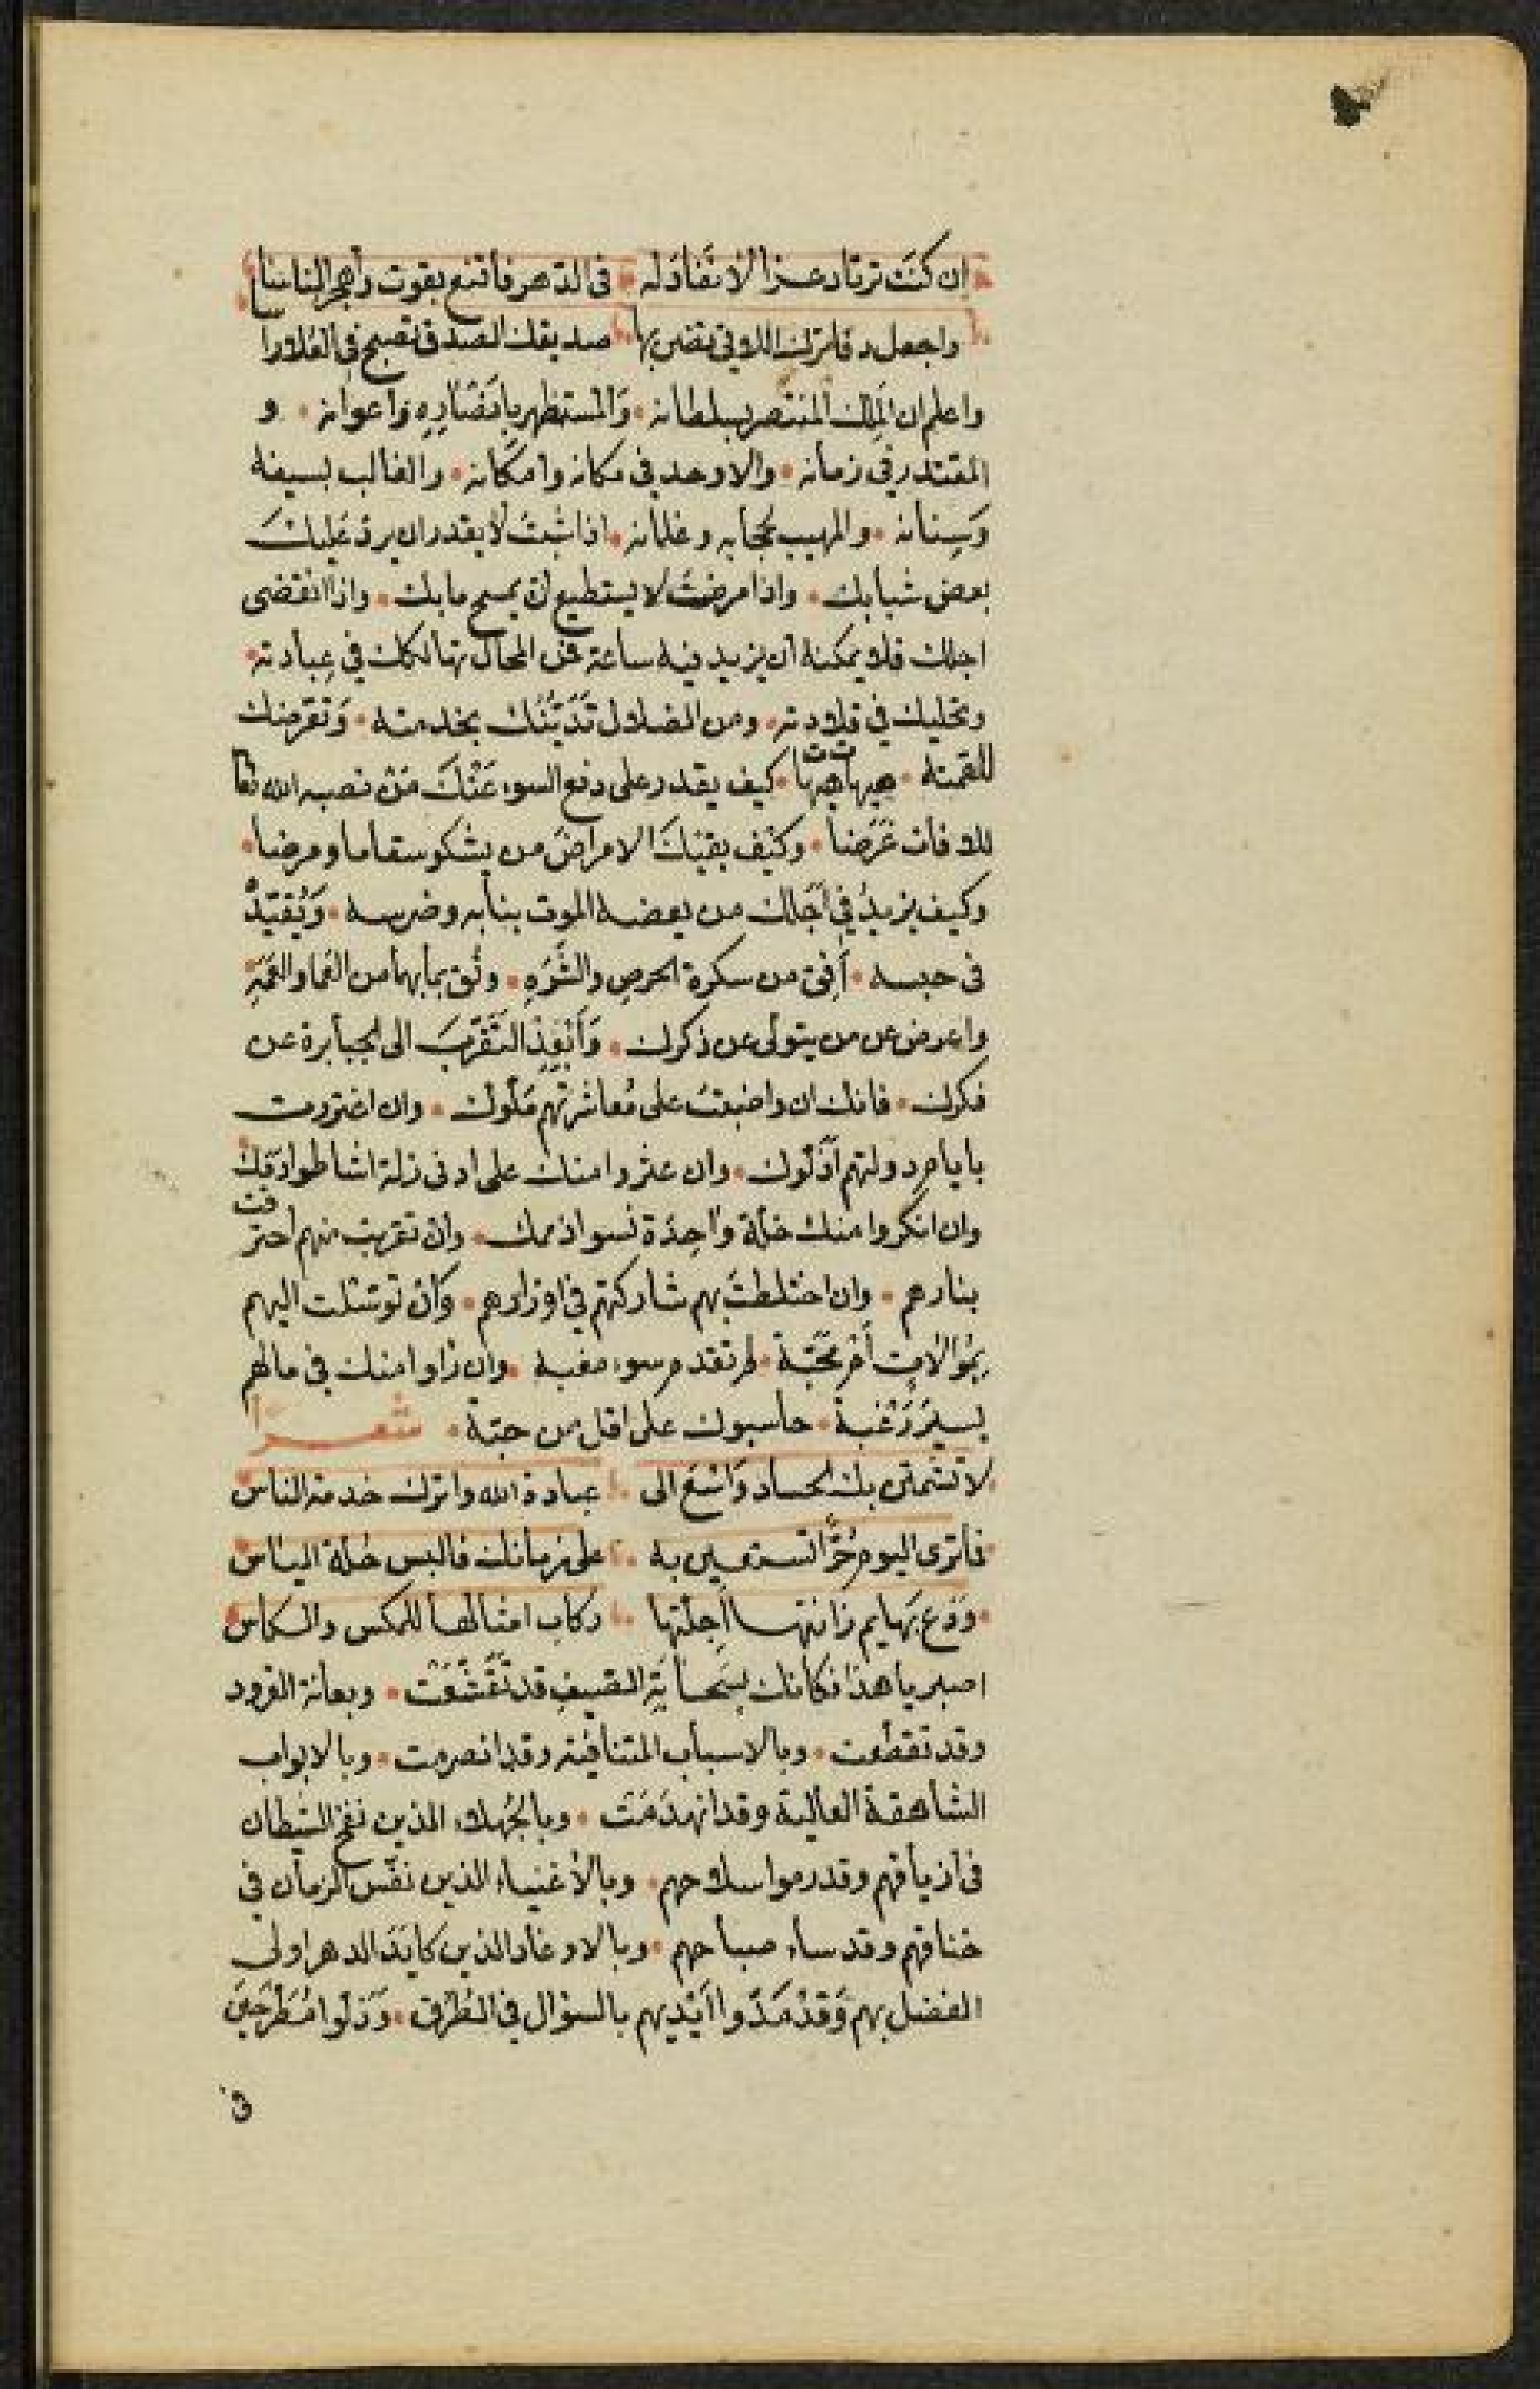 ان كنت ترتاد عزا لا نفاد له في الدهر فاقنع بقوت واهجر الناسا
واجعل دفاترك اللاتي تضن بها صديقك الصدق تصبح في العلا راسا
واعلم ان الملك المنتصر بسلطانه والمستظهر بانصاره واعوانه و
المقتدر في زمانه والاوحد في مكانه وامكانه والغالب بسيفه
وسنانه والمهيب بحجابه وغلمانه اذا شبت لا يقدر ان يرد عليك
بعض شبابك واذا مرضت لا يستطيع ان يمسح ما بك واذا انقضى
اجلك فلا يمكنه ان يزيد فيه ساعة فمن المحال تهالكك في عبادته
وتحليك في قلادته ومن الضلال تدينك بخدمته وتعرضك
للقمته هيهات هيهات كيف يقدر على دفع السوء عنك من نصبه الله تعا
للافات غرضا وكيف يقيك الامراض من يشكو سقاما ومرضا
وكيف يزيد في اجلك من يعضه الموت بنابه وضرسه ويقيد
في حبسه افق من سكرة الحرص والشره وثق بما بهما من الغما والغمة
واعرض عن من يتولى عن ذكرك وانفذ التقرب الى الجبابرة عن
فكرك فانك ان واضبت على معاشرتهم ملوك وان اغتررت
بايام دولتهم اذلوك وان عثروا منك على ادنى زلة اشاطوا دمك
وان انكروا منك خلة واحدة نسوا ذممك وان تقربت منهم احترقت
بنارهم وان اختلطت بهم شاركتهم في اوزارهم وان توسلت اليهم
بموالات او محبة لم تعدم سوء مغبة وان راوا منك في مالهم
يسير رغبة حاسبوك على اقل من حبة شعرا
لا تشمتن بك الحساد واسع الى عبادة الله واترك خدمة الناس
فما ترى اليوم حرا تستعين به على زمانك فالبس حلة الياس
ودع بهايم زانتها اجلتها ركاب امثالها للمكس والكاس
اصبر يا هذا فكانك بسحابة الصيف قد تقشعت وبعانة القرود
وقد تقطعت وبالاسباب المتنافية وقد انصرمت وبالابواب
الشاهقة العالية وقد انهدمت وبالجهلاء الذين نفخ الشيطان
في ازياقهم وقد رموا سلاحهم وبالاغنياء الذين نفس الزمان في
خناقهم وقد ساء صباحهم وبالاوغاد الذين كايد الدهر اولى
الفضل بهم وقد مدوا ايديهم بالسؤال في الطرق وذلوا مطرحين
في